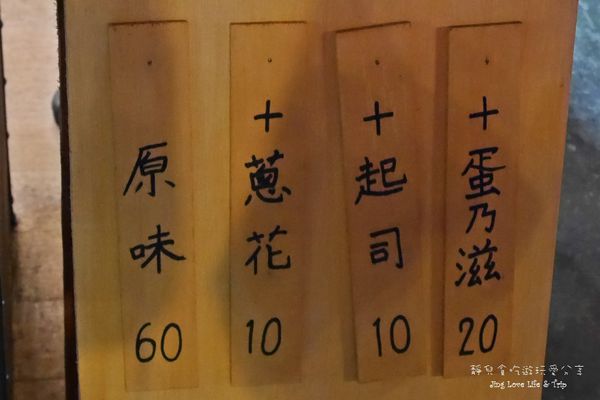 原味
60
+蔥花
10
+起司
10
+蛋乃滋
20
靜兒貪吃遊玩愛分享
Jing Love Life & Trip